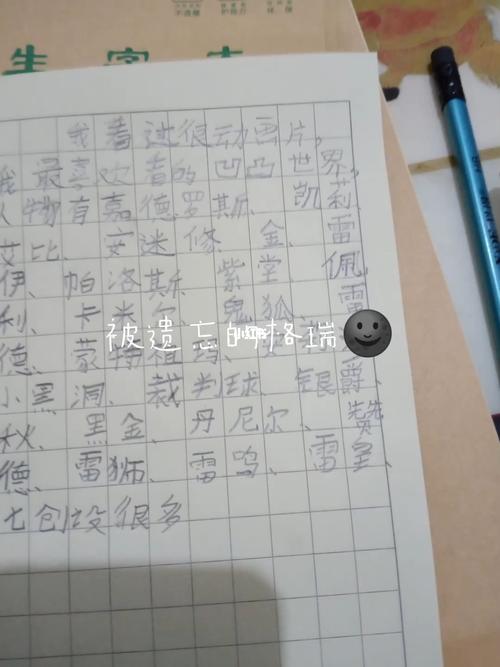 生字本
我看过很动画片，
我最喜欢看的凹凸世界，
人物有嘉德罗斯、凯莉、
艾比、安迷修、金、雷
伊、帕洛斯、紫堂、佩
利、卡米尔、鬼狐、雷
德、蒙特祖玛、
被遗忘的格瑞
小黑洞、裁判球、银爵、
秋、黑金、丹尼尔、赞
德、雷狮、雷鸣、雷皇、
七创设很多